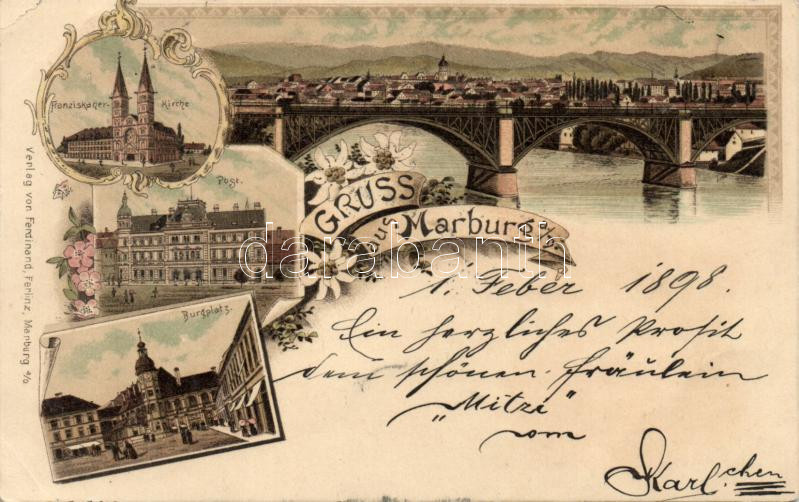 Franziskaner-Kirche
Post.
Burgplatz.
Verlag von Ferdinand, Ferlinz, Marburg a/D
GRUSS
aus Marburg a/D
darabanth
1. Feber 1898.
Ein herzliches Prosit
dem schönen Fräulein
„Mitzi"
vom
Karl.chen